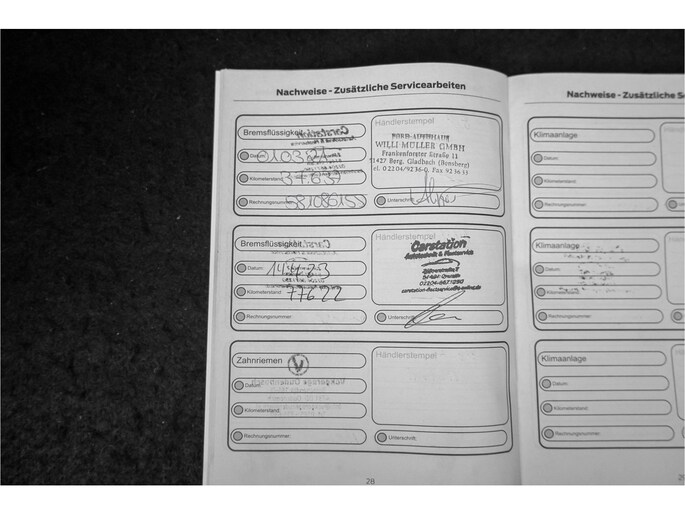 Nachweise - Zusätzliche Servicearbeiten
Bremsflüssigkeit
Datum:
Kilometerstand:
37637
Rechnungsnummer:
Händlerstempel
WILLI MÜLLER GMBH
Frankenforster Straße 11
51427 Berg. Gladbach (Bensberg)
Tel. 02204/9236-0, Fax 923633
Unterschrift:
Bremsflüssigkeit
Datum:
Kilometerstand:
77622
Rechnungsnummer:
Händlerstempel
Carstation
Autotechnik & Fleetservice
Unterschrift:
Zahnriemen
Datum:
Kilometerstand:
Rechnungsnummer:
Händlerstempel
Unterschrift:
28
Nachweise - Zusätzliche
Klimaanlage
Datum:
Kilometerstand:
Rechnungsnummer:
Klimaanlage
Datum:
Kilometerstand:
Rechnungsnummer:
Klimaanlage
Datum:
Kilometerstand:
Rechnungsnummer: